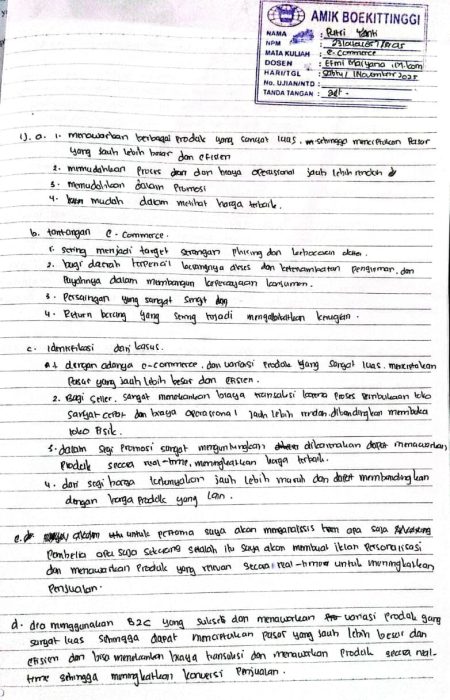 AMIK BOEKITTINGGI
NAMA : Putri Yanti
NPM :
MATA KULIAH : e-commerce
DOSEN : Efmi Maiyana .M.kom
HARI/TGL : Sabtu / 1 November 2025
No. UJIAN/NTD :
TANDA TANGAN :
1). a. 1. menawarkan berbagai Produk yang sangat luas, sehingga menciptakan Pasar
yang jauh lebih besar dan efisien
2. memudahkan Proses dan biaya operasional jauh lebih rendah
3. memudahkan dalam Promosi
4. mudah dalam melihat harga terbaik.
b. tantangan e-commerce.
1. sering menjadi target serangan phising dan
2. bagi daerah terpencil kurangnya akses dan keterlambatan pengiriman, dan
Payahnya dalam membangun kepercayaan konsumen.
3. Persaingan yang sangat sengit
4. Return barang yang sering terjadi mengakibatkan kerugian.
c. Identifikasi dari kasus.
1 dengan adanya e-commerce, dan variasi Produk yang sangat luas, menciptakan
Pasar yang jauh lebih besar dan efisien.
2. Bagi Seller, sangat menekankan biaya transaksi karena Proses Pembukaan toko
sangat cepat dan biaya operasional jauh lebih rendah, dibandingkan membuka
toko fisik.
3. dalam segi Promosi sangat menguntungkan dikarenakan dapat menawarkan
Produk secara real-time, meningkatkan harga terbaik.
4. dari segi harga jauh lebih murah dan dapat membandingkan
dengan harga Produk yang lain.
e. untuk pertama saya akan menganalisis apa saja
Pembelia apa saja sekarang setelah itu saya akan membuat iklan Personalisasi
dan menawarkan Produk yang relevan secara real-time untuk meningkatkan
Penjualan.
d. dia menggunakan B2C yang sukses dan menawarkan variasi Produk yang
sangat luas sehingga dapat menciptakan pasar yang jauh lebih besar dan
efisien dan bisa menekankan biaya transaksi dan menawarkan Produk secara real-
time sehingga meningkatkan konversi Penjualan.